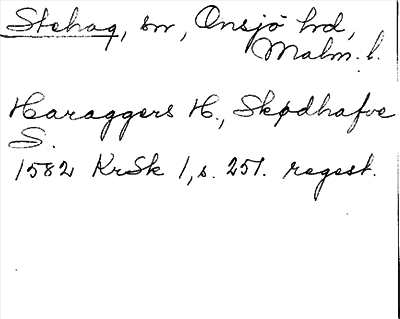 Stehag, sn, Onsjö hd,
Malm. l.
Haraggers H., Skødhafve
S.
1582 KrSk 1, s. 251. regest.